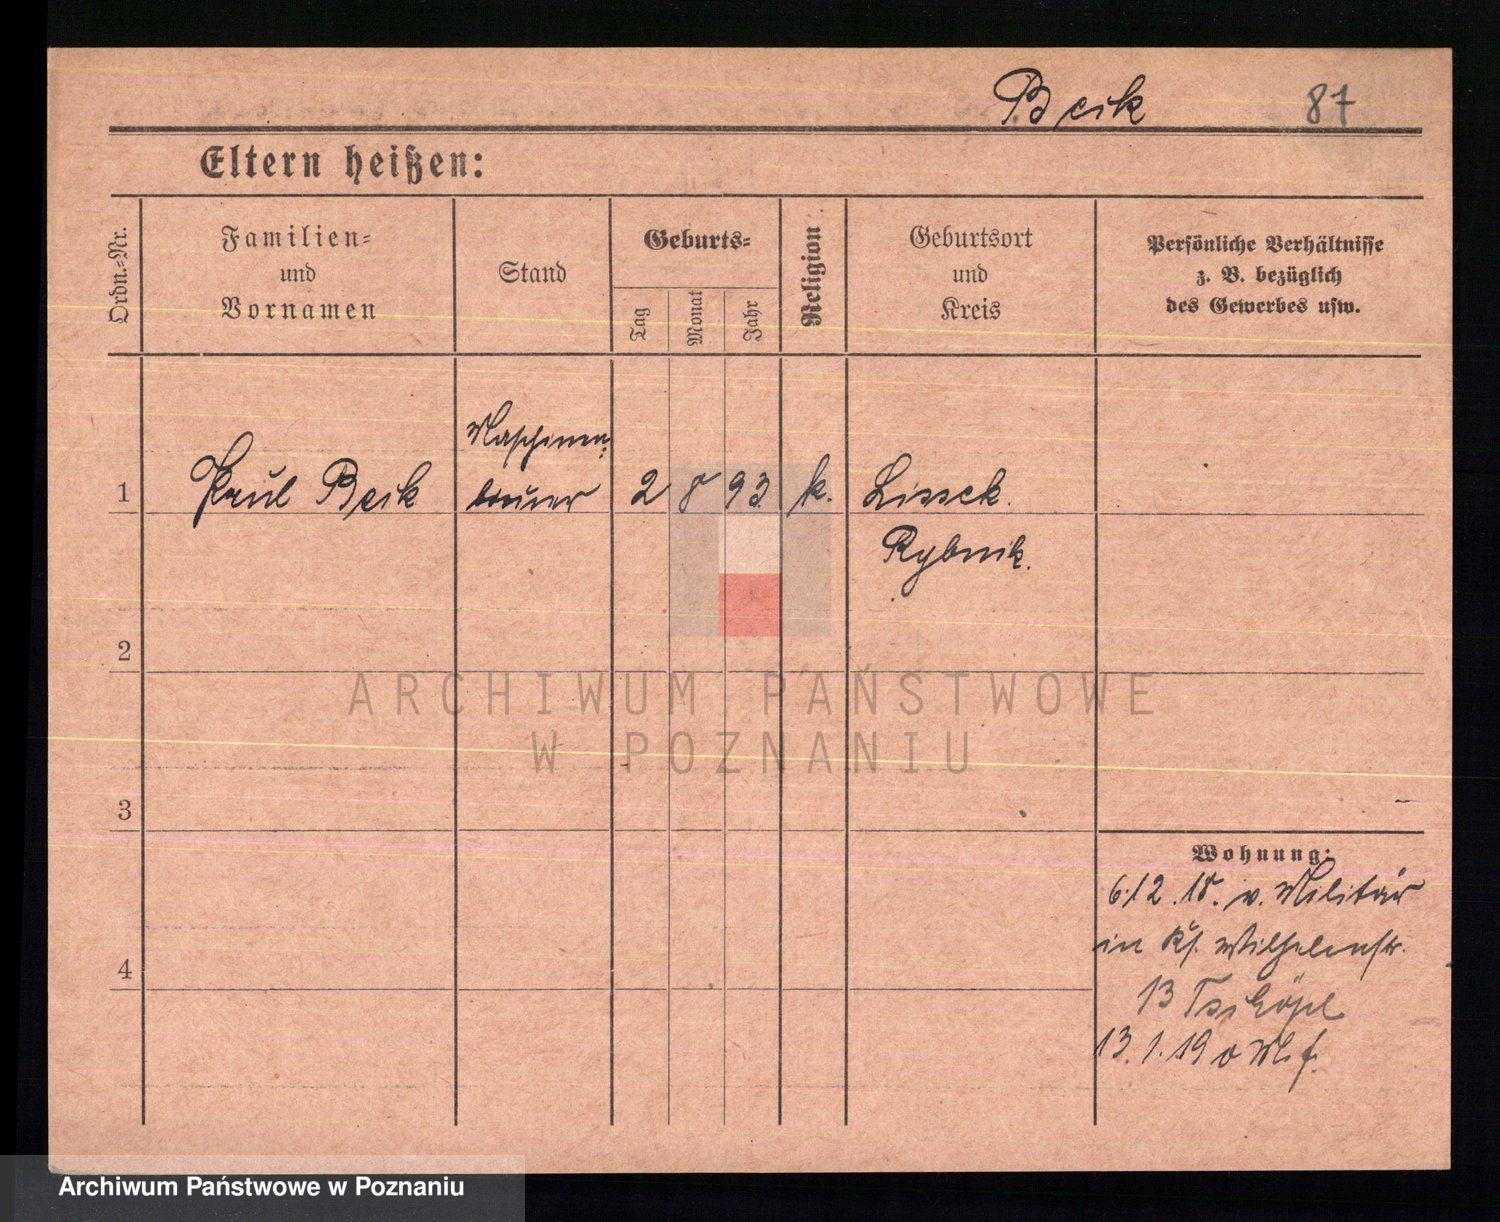 Beik 87
Eltern heißen:
Ordn.-Nr.
Familien-
und
Vornamen
Stand
Geburts-
Tag
Monat
Jahr
Religion
Geburtsort
und
Kreis
Persönliche Verhältnisse
z. B. bezüglich
des Gewerbes usw.
1 Paul Beik Maschinen-
bauer 2 8 93 k. Lissek.
Rybnik.
2
3
4
Wohnung:
6.12.18. v. Militär
in Wilhelmstr.
13
13.1.19
ARCHIWUM PAŃSTWOWE
W POZNANIU
Archiwum Państwowe w Poznaniu